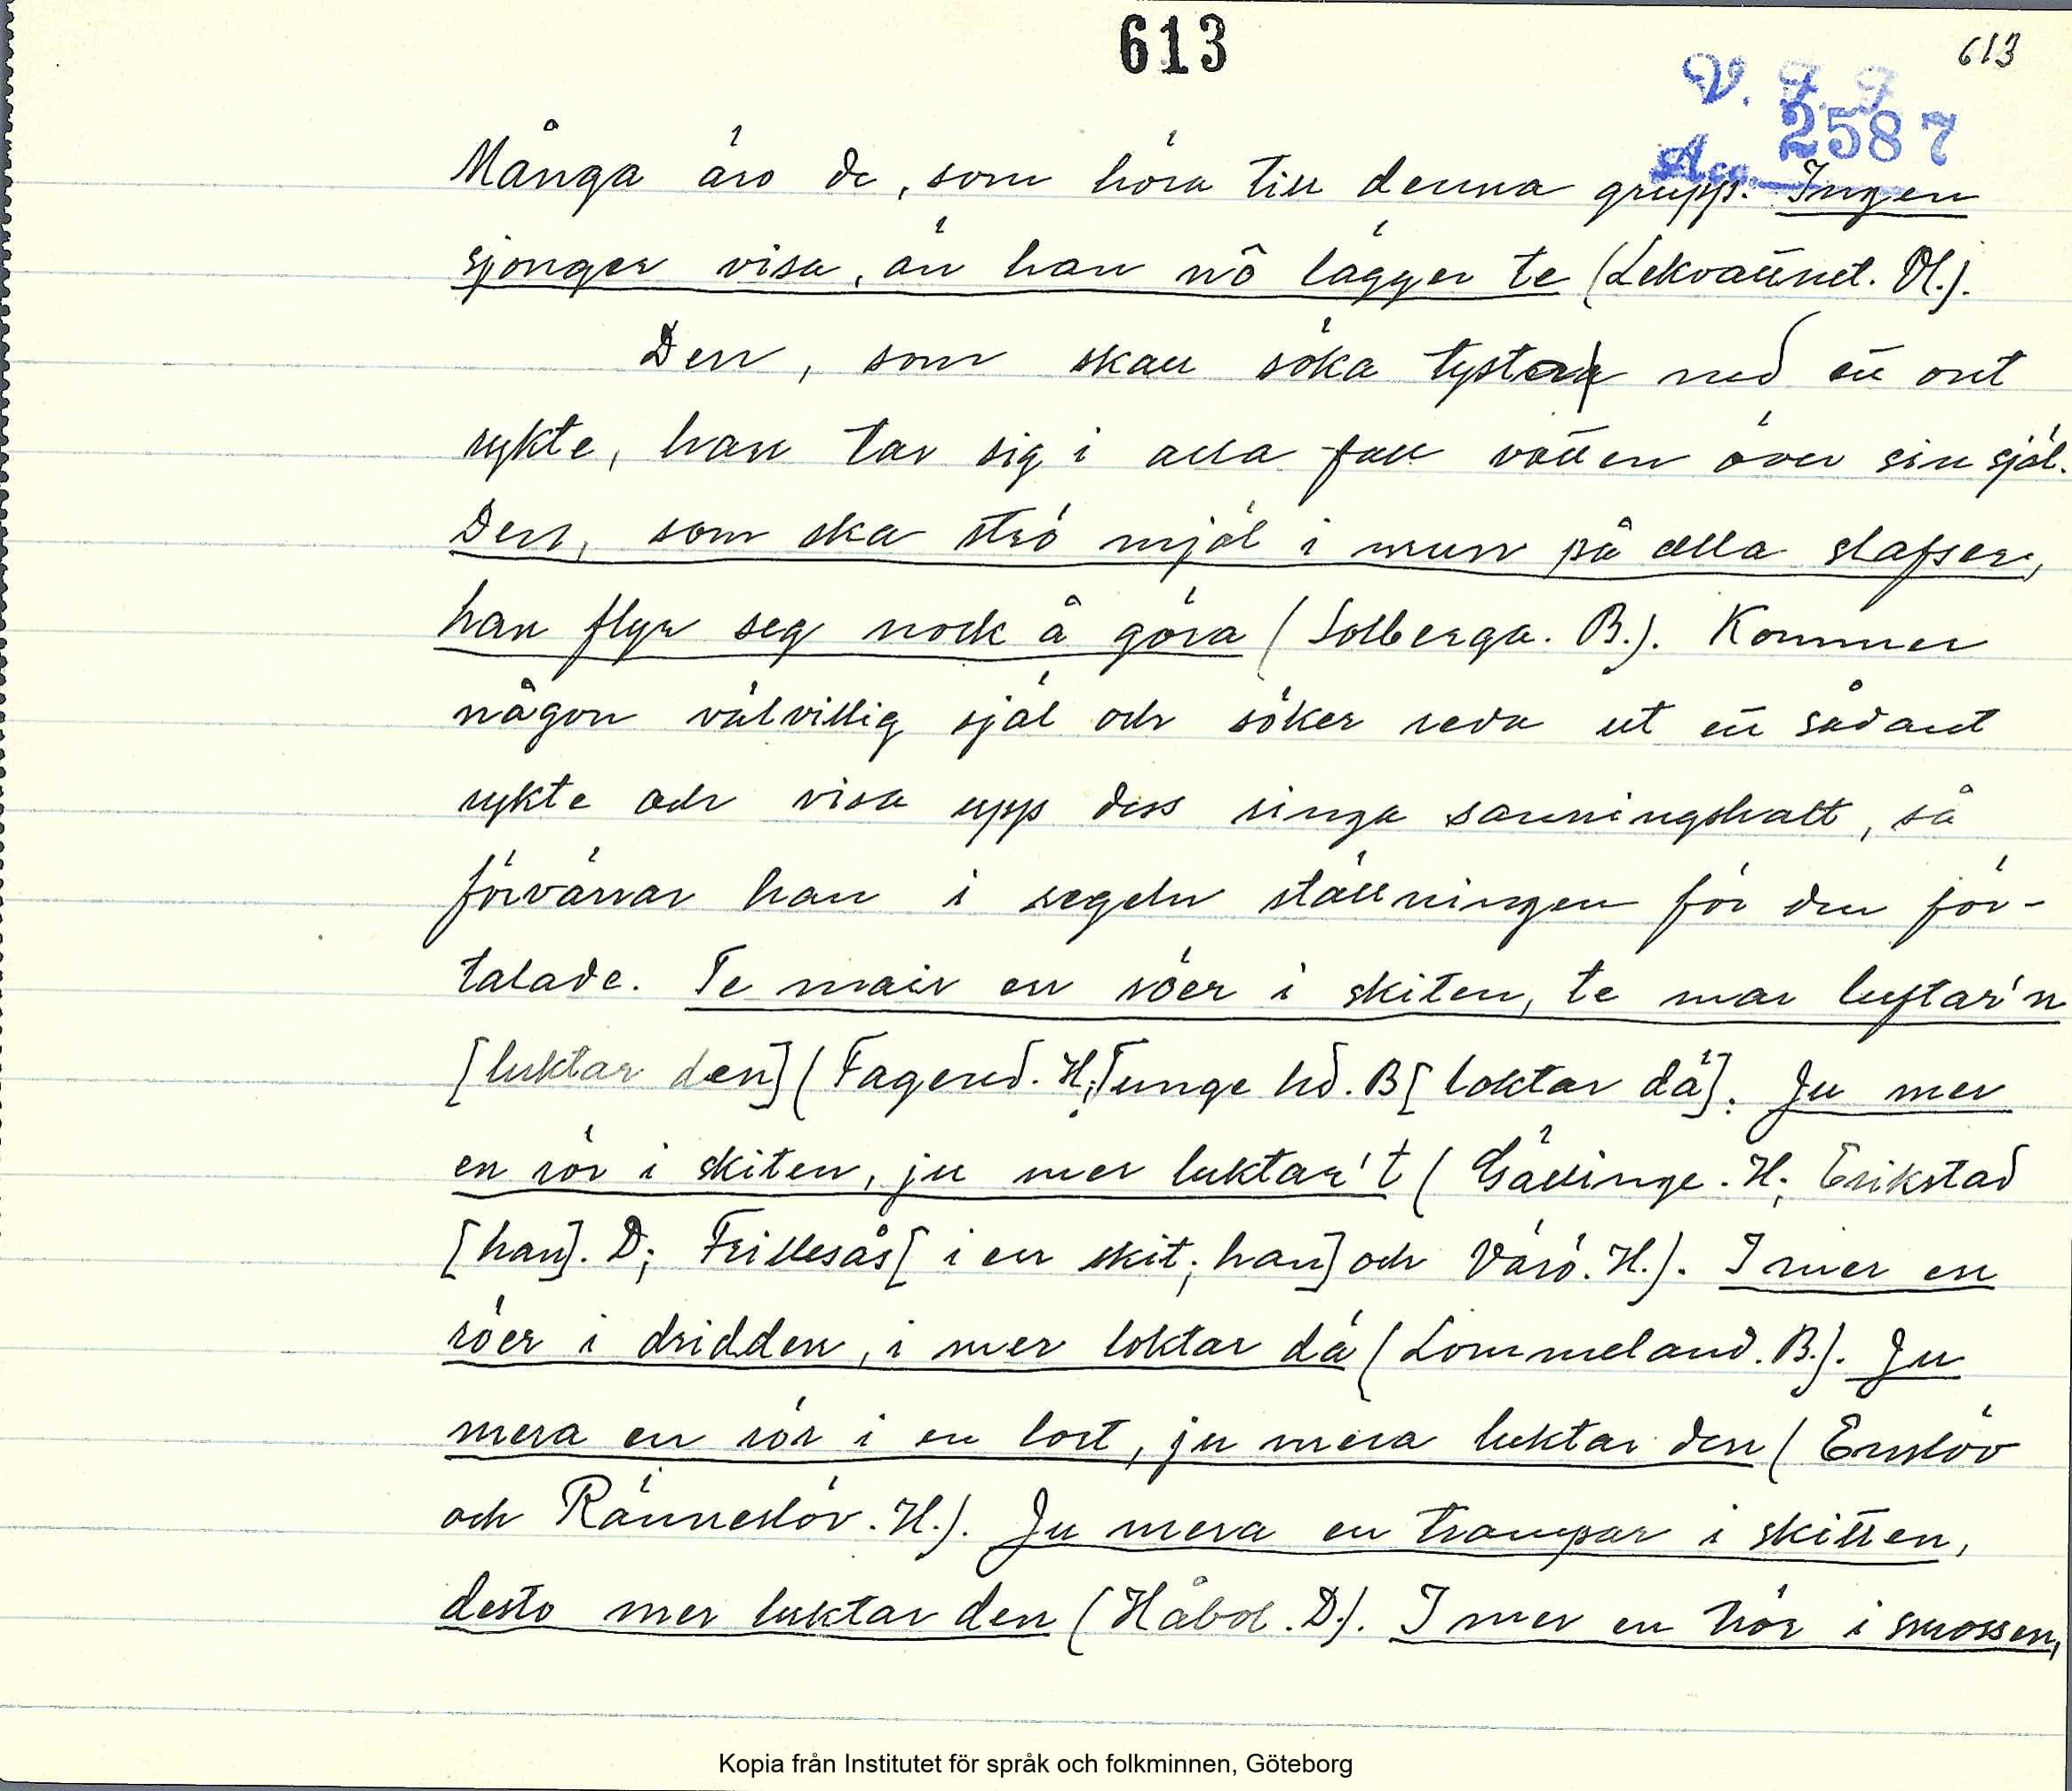 613
613
V. F. F
Acc. 2587
Många äro de, som höra till denna grupp. Ingen
sjonger visa, än han nô lägger te (Lekvattnet. Vl.).
Den, som skall söka tysta ned ett ont
rykte, han tar sig i alla fall vatten över sin själ.
Den, som ska strö mjöl i mun på alla slafser,
han flyr seg nock å göra (Solberga. B.). Kommer
någon välvillig själ och söker reda ut ett sådant
rykte och visa upp dess ringa sanningshalt, så
förvärrar han i regeln ställningen för den för-
talade. Te mair en röer i skiten, te mar luftar'n
[luktar den] (Fagered. H; Tunge hd. B [loktar dä]. Ju mer
en rör i skiten, ju mer luktar't (Gällinge. H; Erikstad
[han]. D; Frillesås [i en skit; han] och Värö. H.). I mer en
röer i dridden, i mer loktar dä (Lommeland. B.). Ju
mera en rör i en lort, ju mera luktar den (Enslöv
och Ränneslöv. H.). Ju mera en trampar i skitten,
desto mer luktar den (Håbol. D.). I mer en rör i smossen,
Kopia från Institutet för språk och folkminnen, Göteborg